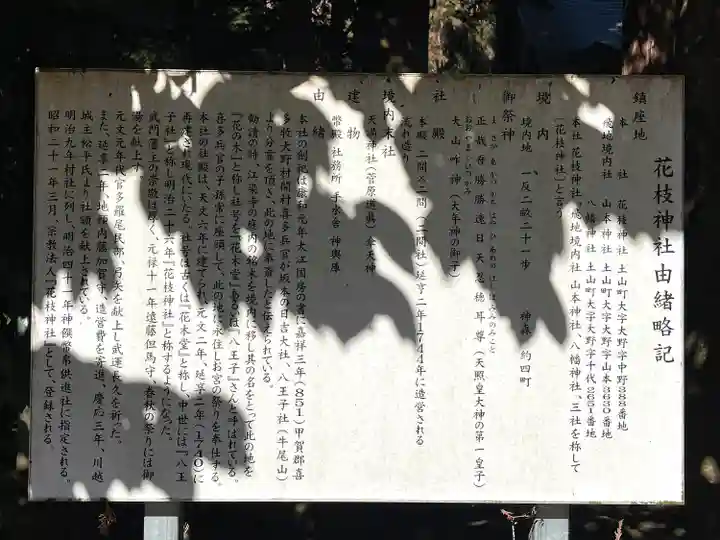 花枝神社由緒略記
鎮座地
本社 花枝神社 土山町大字大野字中野388番地
飛地境内社 山本神社 土山町大字大野字山本3630番地
八幡神社 土山町大字大野字千代2651番地
本社 花枝神社、飛地境内社 山本神社、八幡神社、三社を称して
(花枝神社)と言う
境内
境内地 一反二畝二十一歩 神森 約四町
御祭神
まさかあかつかちはやひあめのおしほみみのみこと
正哉吾勝勝速日天忍穂耳尊(天照皇大神の第一皇子)
おおやまくいのかみ
大山咋神(大年神の御子)
社殿
流れ造り
本殿 二間×二間(二間社)延享二年1744年に造営される
境内末社
天満神社(菅原道真)
建物
幣殿 社務所 手水舎 神輿庫
由緒
本社の創祀は敬和元年大江国房の書に嘉祥三年(851)甲賀郡喜
多牧大野村開村喜多兵官が坂本の日吉大社、八王子社(牛尾山)
より分霊を頂き、此の地に奉斎したと伝えられている。
勧請の時、江染寺の庭内の銘木を境内に移し其の名をとって此の地を
『花の木』と称し社号を『花木堂』あるいは『八王子』さんと呼ばれている。
喜多兵官の子孫常に座頭して、此の地に永住しお宮の祭りを奉仕する。
本社の社殿は、天文六年に建てられ、元文二年、延享二年(1740)に
再建され現代にいたる。社号は古くは『花木堂』と称し、中世には『八王
子社』と称し明治二十六年『花枝神社』と称するようになった。
武門藩主の崇敬は厚く、元禄十一年遠藤但馬守、春秋の祭りには御
湯を献上す。
元文元年代官多羅尾氏部、弓矢を献上し武運長久を祈った。
また、延喜二年、地頭内藤加賀守、造営費を寄進、慶応三年、川越
城主松平氏より社領を献上されている。
明治九年村社に列し、明治四十一年神饌幣帛供進社に指定される。
昭和二十一年三月、宗教法人『花枝神社』として、登録される。